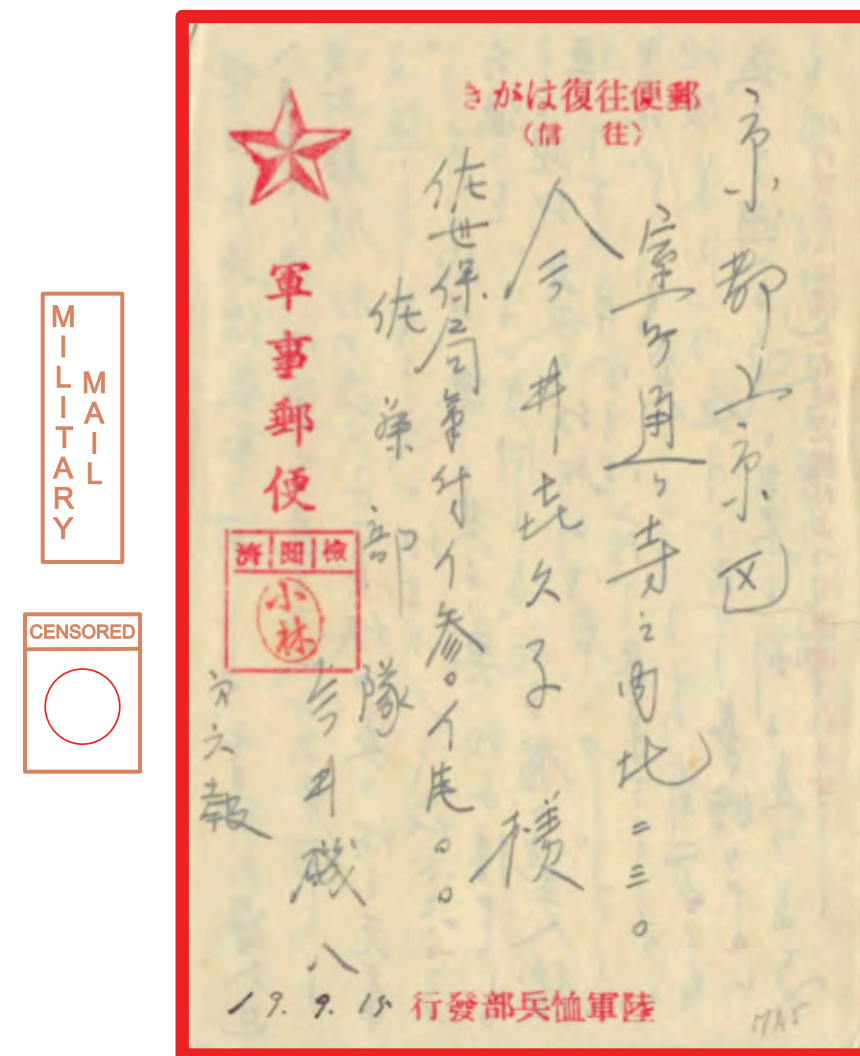 MILITARY
MAIL
CENSORED
郵便往復はがき
(往信)
軍事郵便
檢閲濟
小林
京都上京区
室町通り寺之内北二三〇
今井㐂久子様
佐世保局
佐藤部隊
今井磯八
第六報
19.9.15
陸軍恤兵部發行